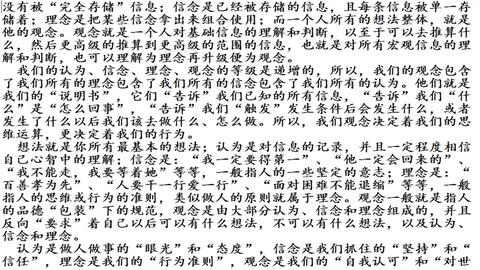 没有被“完全存储”信息；信念是已经被存储的信息，且每条信息被单一存
储着；理念是把某些信念拿出来组合使用；而一个人所有的想法整体，就是
他的观念。观念就是一个人对基础信息的理解和判断，以至于可以去推算什
么，然后更高级的推算到更高级的范围的信息，也就是对所有宏观信息的理
解和判断，也可以理解为理念再升级便为观念。
我们的认为、信念、理念、观念的等级是递增的，所以，我们的观念包含
了我们所有的理念包含了我们所有的信念包含了我们所有的认为。他们就是
我们的“说明书”，它们“告诉”我们已知的所有信息，“告诉”我们“什
么”是“怎么回事”，“告诉”我们“触发”发生条件后会发生什么，或者
发生了什么以后我们该去做什么、怎么做。所以，我们观念决定着我们的思
维运算，更决定着我们的行为。
想法就是你所有最基本的想法；认为是对信息的记录，并且一定程度相信
自己心智中的理解；信念是：“我一定要得第一”、“他一定会回来的”、
“我不能走，我要等着她”等等，一般指人的一些坚定的意志；理念是：“
百善孝为先”、“人要干一行爱一行”、“面对困难不能退缩”等等，一般
指人的思维或行为的准则，类似做人的原则就属于理念。观念一般就是指人
的品德“包装”下的规范，观念是由大部分认为、信念和理念组成的，并且
反向“要求”着自己以后可以有什么想法，不可以有什么想法，以及认为、
信念和理念。
认为是做人做事的“眼光”和“态度”，信念是我们抓住的“坚持”和“
信任”，理念是我们的“行为准则”，观念是我们的“自我认可”和“对世